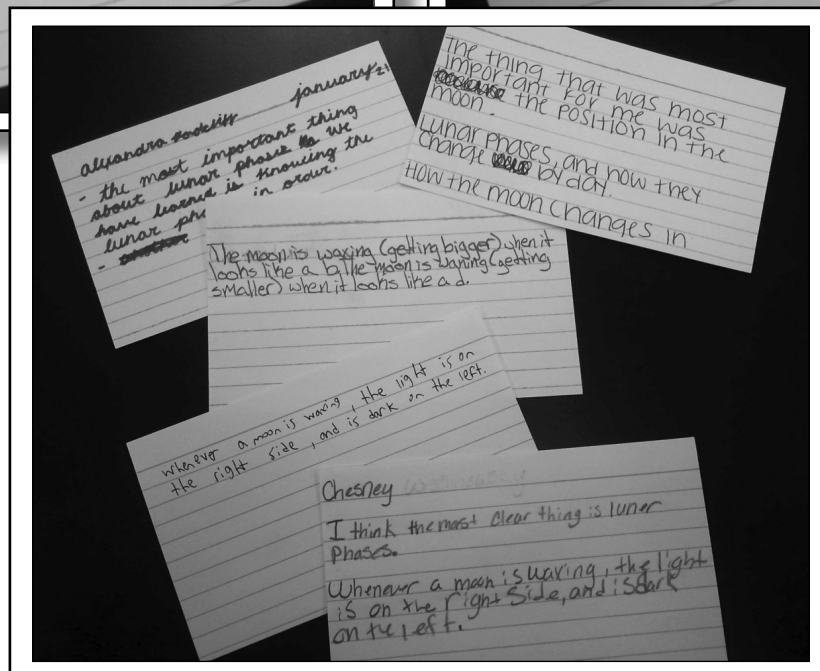 alexandra january 21
- the most important thing
about lunar phases is we
have learned is knowing the
lunar pha in order.
-
The thing that was most
important for me was
the position in the
moon.
Lunar phases, and how they
change by day.
How the moon changes in
The moon is waxing (getting bigger) when it
looks like a b, the moon is waning (getting
smaller) when it looks like a d.
whenever a moon is waxing, the light is on
the right side, and is dark on the left.
Chesney
I think the most clear thing is luner
Phases.
Whenever a moon is waxing, the light
is on the right side, and is dark
on the left.